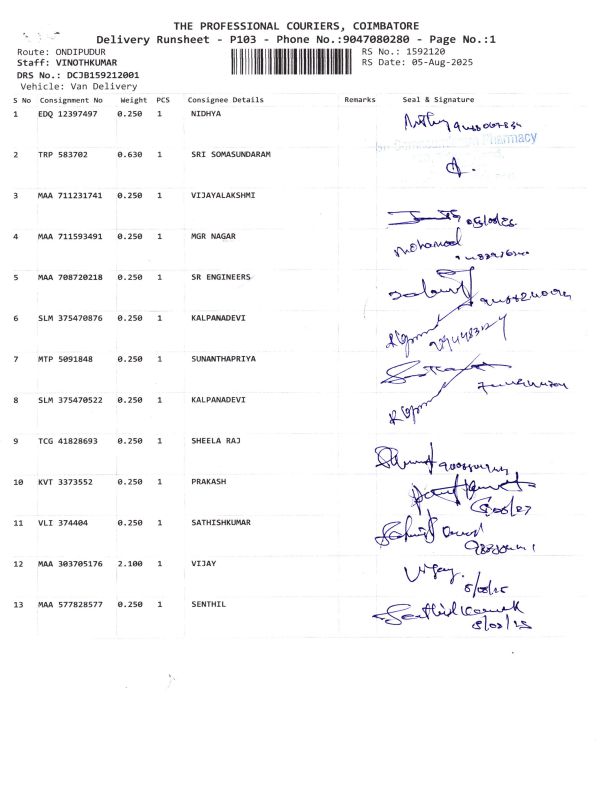 THE PROFESSIONAL COURIERS, COIMBATORE
Delivery Runsheet - P103 - Phone No.:9047080280 - Page No.:1
Route: ONDIPUDUR RS No.: 1592120
Staff: VINOTHKUMAR RS Date: 05-Aug-2025
DRS No.: DCJB159212001
Vehicle: Van Delivery
S No Consignment No Weight PCS Consignee Details Remarks Seal & Signature
1 EDQ 12397497 0.250 1 NIDHYA
Pharmacy
2 TRP 583702 0.630 1 SRI SOMASUNDARAM
3 MAA 711231741 0.250 1 VIJAYALAKSHMI
4 MAA 711593491 0.250 1 MGR NAGAR
Mohamed
5 MAA 708720218 0.250 1 SR ENGINEERS
6 SLM 375470876 0.250 1 KALPANADEVI
7 MTP 5091848 0.250 1 SUNANTHAPRIYA
8 SLM 375470522 0.250 1 KALPANADEVI
9 TCG 41828693 0.250 1 SHEELA RAJ
10 KVT 3373552 0.250 1 PRAKASH
11 VLI 374404 0.250 1 SATHISHKUMAR
12 MAA 303705176 2.100 1 VIJAY
Vijay.
13 MAA 577828577 0.250 1 SENTHIL